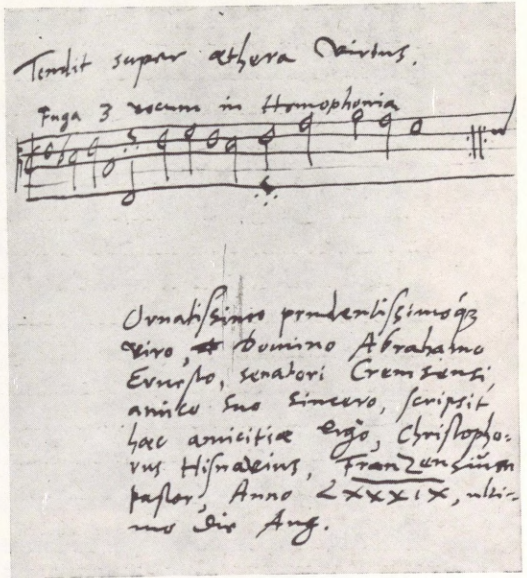 Tendit super æthera virtus.
Fuga 3 vocum in Homophonia
Ornatissimo prudentissimoq́;
viro, Domino Abrahamo
Ernesto, senatori Cremsensi,
amico suo sincero, scripsit
hæc amicitiæ ergo, Christopho-
rus
pastor, Anno LXXXIX, ulti-
mo die Aug.